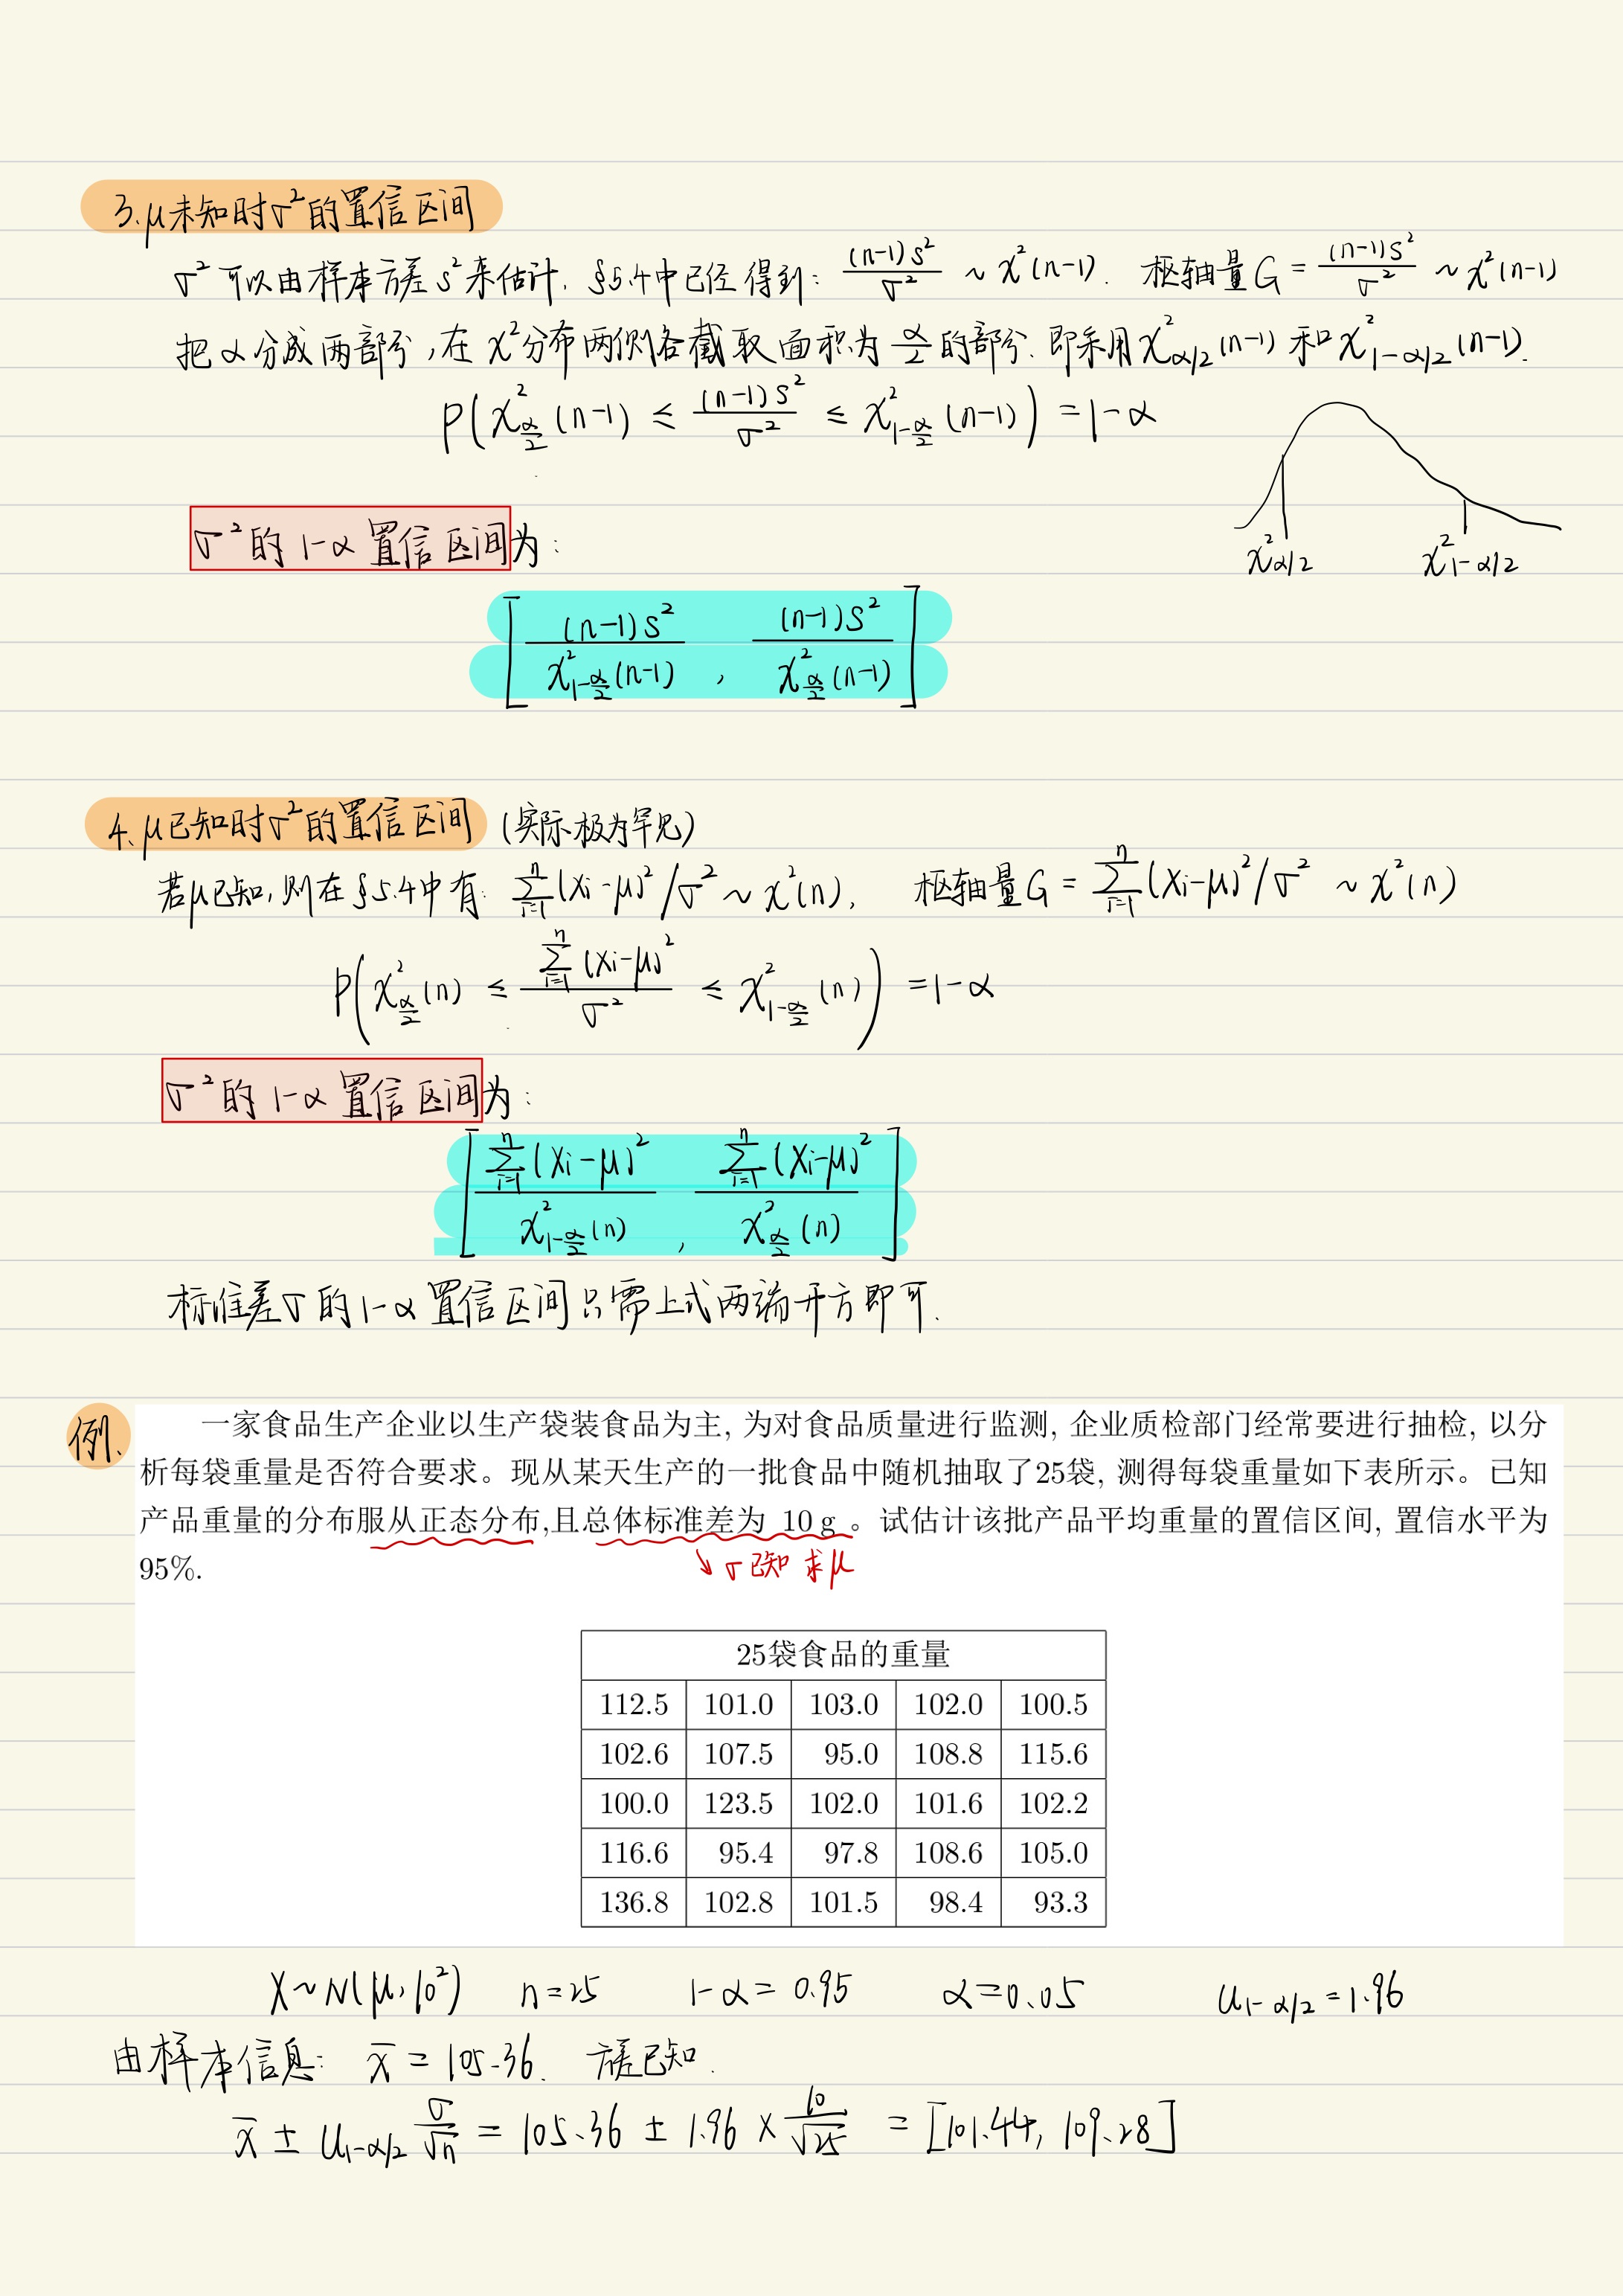 3. μ未知时σ²的置信区间
σ²可以由样本方差s²来估计. §5.4中已经得到: (n-1)s²/σ² ~ χ²(n-1). 枢轴量G = (n-1)s²/σ² ~ χ²(n-1)
把α分成两部分,在χ²分布两侧各截取面积为α/2的部分.即采用χ²_{α/2}(n-1)和χ²_{1-α/2}(n-1).
P(χ²_{α/2}(n-1) ≤ (n-1)s²/σ² ≤ χ²_{1-α/2}(n-1)) = 1-α
χ²_{α/2} χ²_{1-α/2}
σ²的1-α置信区间为:
[(n-1)s²/χ²_{1-α/2}(n-1), (n-1)s²/χ²_{α/2}(n-1)]
4. μ已知时σ²的置信区间 (实际极为罕见)
若μ已知,则在§5.4中有: ∑_{i=1}^{n}(xi-μ)²/σ² ~ χ²(n), 枢轴量G = ∑_{i=1}^{n}(xi-μ)²/σ² ~ χ²(n)
P(χ²_{α/2}(n) ≤ ∑_{i=1}^{n}(xi-μ)²/σ² ≤ χ²_{1-α/2}(n)) = 1-α
σ²的1-α置信区间为:
[∑_{i=1}^{n}(xi-μ)²/χ²_{1-α/2}(n), ∑_{i=1}^{n}(xi-μ)²/χ²_{α/2}(n)]
标准差σ的1-α置信区间只需上式两端开方即可.
例.
一家食品生产企业以生产袋装食品为主, 为对食品质量进行监测, 企业质检部门经常要进行抽检, 以分
析每袋重量是否符合要求。现从某天生产的一批食品中随机抽取了25袋, 测得每袋重量如下表所示。已知
产品重量的分布服从正态分布,且总体标准差为 10 g 。试估计该批产品平均重量的置信区间, 置信水平为
95%.
↘ σ已知 求μ
25袋食品的重量
112.5 101.0 103.0 102.0 100.5
102.6 107.5 95.0 108.8 115.6
100.0 123.5 102.0 101.6 102.2
116.6 95.4 97.8 108.6 105.0
136.8 102.8 101.5 98.4 93.3
X~N(μ,10²) n=25 1-α=0.95 α=0.05 u_{1-α/2}=1.96
由样本信息: x̄ = 105.36. 方差已知.
x̄ ± u_{1-α/2} σ/√n = 105.36 ± 1.96 × 10/√25 = [101.44, 109.28]